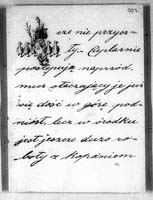 502
cze nie przyszr-
ty - Czplarnie
postępują naprzód,
mur otaczający je już
się dość w górę pod-
niósł, lecz w środku
jest jeszcze dużo ro-
boty z kopaniem